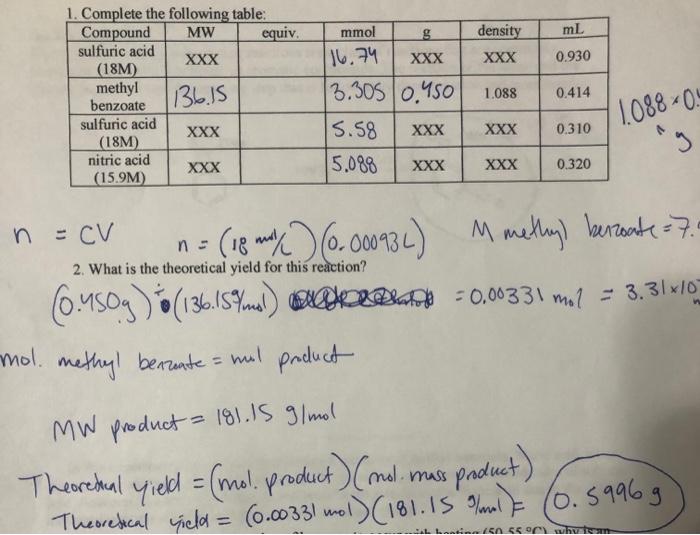 1. Complete the following table:
Compound MW equiv. mmol g density mL
sulfuric acid (18M) XXX 16.74 XXX XXX 0.930
methyl benzoate 136.15 3.305 0.450 1.088 0.414
sulfuric acid (18M) XXX 5.58 XXX XXX 0.310
nitric acid (15.9M) XXX 5.088 XXX XXX 0.320
1.088 × 0.
g
n = CV n = (18 mol/L)(0.00093L) M methyl benzoate = 7.
2. What is the theoretical yield for this reaction?
(0.450g) ÷ (136.15g/mol) = 0.00331 mol = 3.31×10
mol. methyl benzoate = mol product
MW product = 181.15 g/mol
Theoretical yield = (mol. product)(mol. mass product)
Theoretical yield = (0.00331 mol)(181.15 g/mol) = 0.5996 g
with heating (50-55 °C) why is an